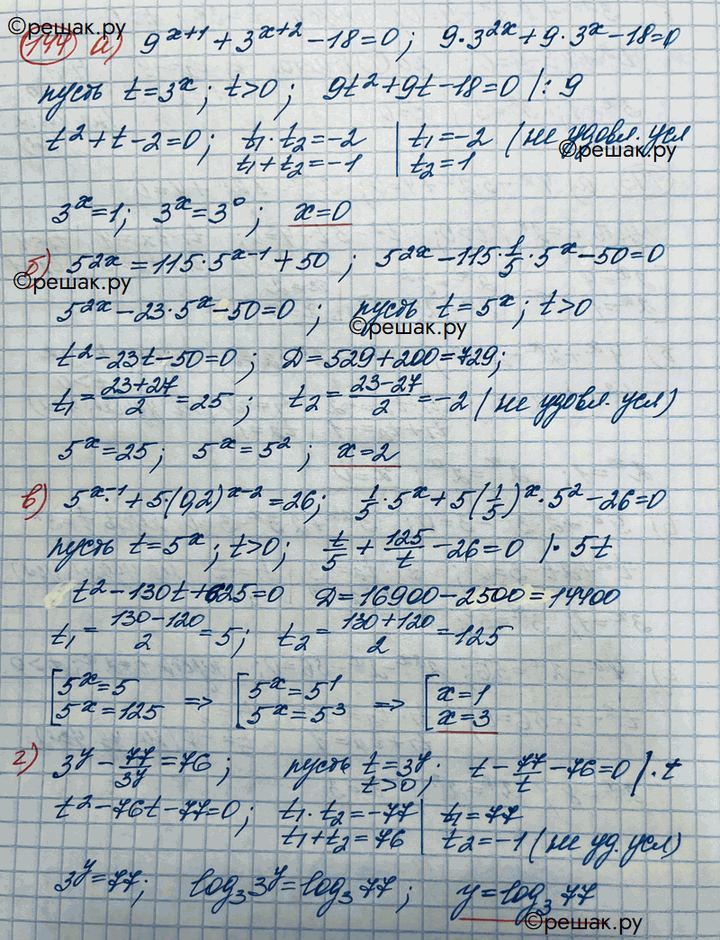 ©решак.ру
144 а) 9^(x+1) + 3^(x+2) − 18 = 0; 9·3^(2x) + 9·3^x − 18 = 0
пусть t = 3^x; t > 0; 9t² + 9t − 18 = 0 |: 9
t² + t − 2 = 0; t₁·t₂ = −2 | t₁ = −2 (не удовл. усл
t₁ + t₂ = −1 | t₂ = 1
©решак.ру
3^x = 1; 3^x = 3^0; x = 0
б) 5^(2x) = 115·5^(x−1) + 50; 5^(2x) − 115·1/5·5^x − 50 = 0
©решак.ру
5^(2x) − 23·5^x − 50 = 0; пусть t = 5^x; t > 0
©решак.ру
t² − 23t − 50 = 0; D = 529 + 200 = 729;
t₁ = (23+27)/2 = 25; t₂ = (23−27)/2 = −2 (не удовл. усл)
5^x = 25; 5^x = 5²; x = 2
в) 5^(x−1) + 5·(0,2)^(x−2) = 26; 1/5·5^x + 5(1/5)^x·5² − 26 = 0
пусть t = 5^x; t > 0; t/5 + 125/t − 26 = 0 |· 5t
t² − 130t + 625 = 0 D = 16900 − 2500 = 14400
t₁ = (130−120)/2 = 5; t₂ = (130+120)/2 = 125
[5^x = 5 => [5^x = 5^1 => [x = 1
5^x = 125 5^x = 5^3 x = 3
г) 3^y − 77/3^y = 76; пусть t = 3^y; t − 77/t − 76 = 0 |· t
t > 0
t² − 76t − 77 = 0; t₁·t₂ = −77 | t₁ = 77
t₁ + t₂ = 76 | t₂ = −1 (не уд. усл)
3^y = 77; log₃3^y = log₃77; y = log₃77
©решак.ру